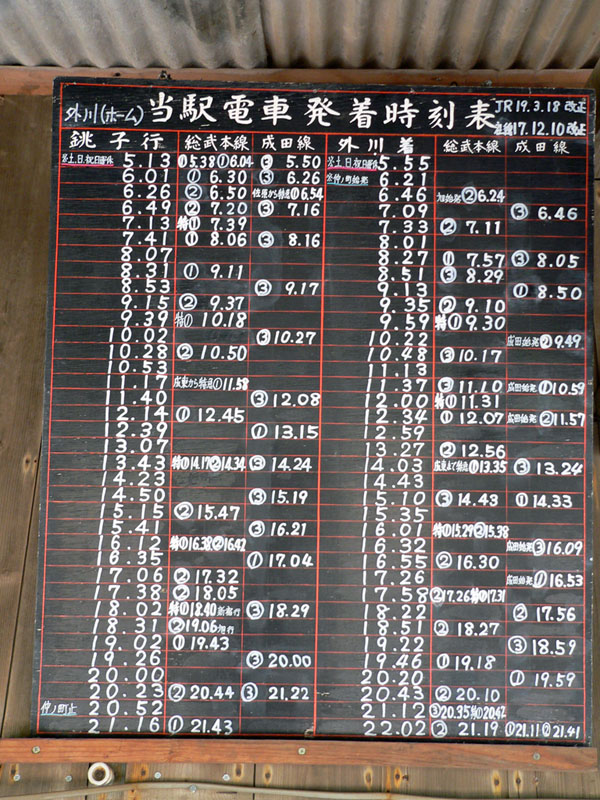 外川(ホーム) 当駅電車発着時刻表 JR19.3.18改正
17.12.10改正
銚子行 総武本線 成田線 外川着 総武本線 成田線
5.13 ①5.38 ①6.04 ③ 5.50 5.55
6.01 ① 6.30 ③ 6.26 6.21
6.26 ② 6.50 佐原から特急①6.54 6.46 旭始発②6.24
6.49 ② 7.20 ③ 7.16 7.09 ③ 6.46
7.13 特① 7.39 7.33 ② 7.11
7.41 ① 8.06 ③ 8.16 8.01
8.07 8.27 ① 7.57 ③ 8.05
8.31 ① 9.11 8.51 ③ 8.29
8.53 ③ 9.17 9.13 ① 8.50
9.15 ② 9.37 9.35 ② 9.10
9.39 特① 10.18 9.59 特① 9.30
10.02 ③10.27 10.22 成田始発②9.49
10.28 ② 10.50 10.48 ③ 10.17
10.53 11.13
11.17 成東から特急①11.58 11.37 ③ 11.10 成田始発①10.59
11.40 ③ 12.08 12.00 特①11.31
12.14 ① 12.45 12.34 ① 12.07 成田始発②11.57
12.39 ① 13.15 12.59
13.07 13.27 ② 12.56
13.43 特①14.17②14.34 ③ 14.24 14.03 成東まで特急①13.35 ③ 13.24
14.23 14.43
14.50 ③ 15.19 15.10 ③ 14.43 ① 14.33
15.15 ② 15.47 15.35
15.41 ③ 16.21 16.01 特①15.29②15.38
16.12 特①16.38②16.42 16.32 成田始発③16.09
16.35 ① 17.04 16.55 ② 16.30
17.06 ② 17.32 17.26 成田始発①16.53
17.38 ② 18.05 17.58 ②17.26特①17.31
18.02 特①18.40新宿行 ③ 18.29 18.22 ② 17.56
18.31 ②19.06旭行 18.51 ② 18.27
19.02 ① 19.43 19.22 ③ 18.59
19.26 ③ 20.00 19.46 ① 19.18
20.00 20.20 ① 19.59
20.23 ② 20.44 ③ 21.22 20.43 ② 20.10
仲ノ町止 20.52 21.12 ③20.35特①20.42
21.16 ① 21.43 22.02 ② 21.19 ①21.11 ②21.41